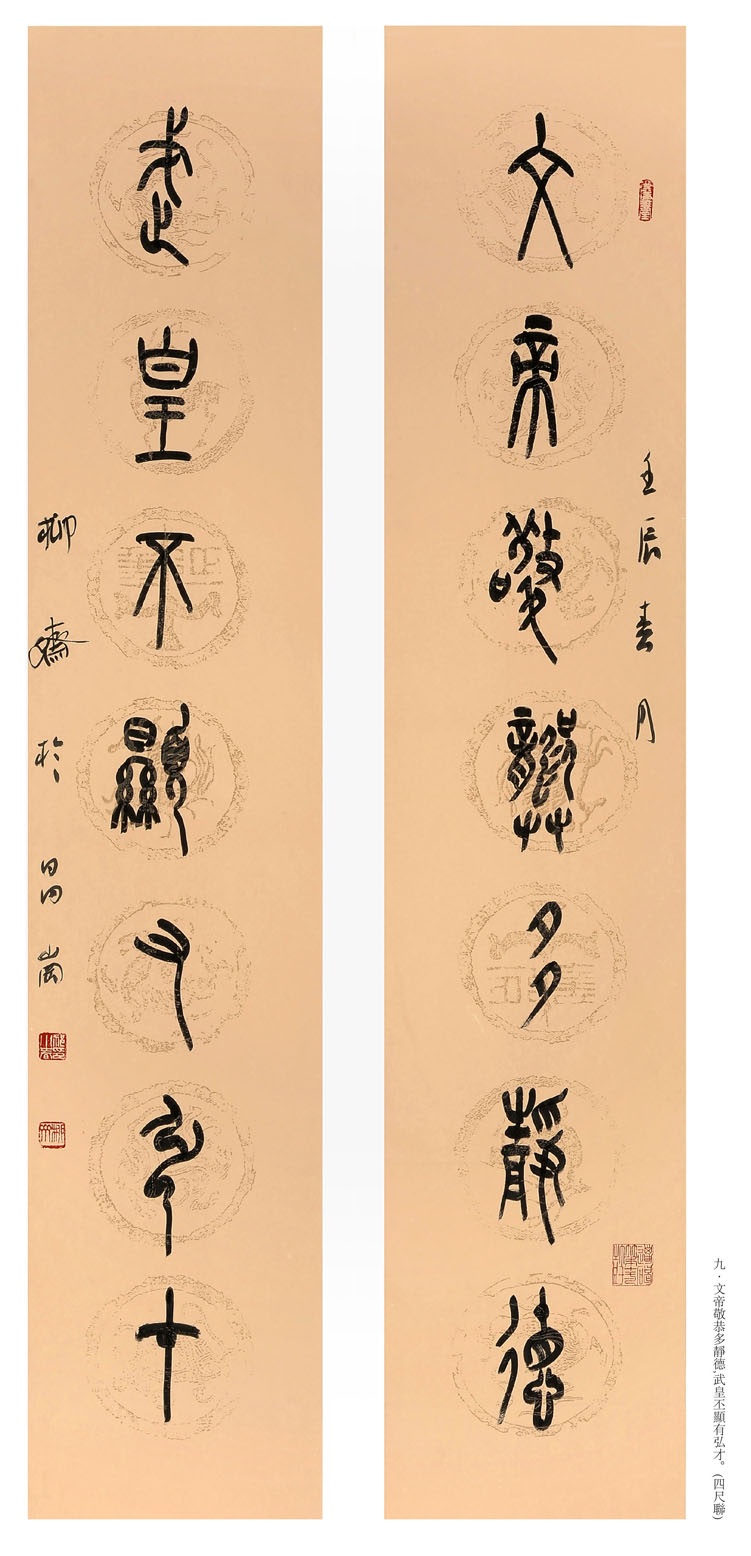 文帝敬龏多靜德
壬辰春月
武皇不顯又弘才
柳齋於昌岡
九·文帝敬恭多靜德,武皇丕顯有弘才。(四尺聯)